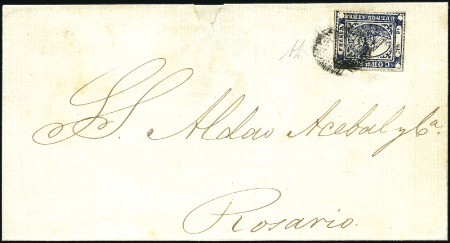 S.S. Aldao Acebal y Ca.
Rosario.
CORREOS
BUENOS AIRES